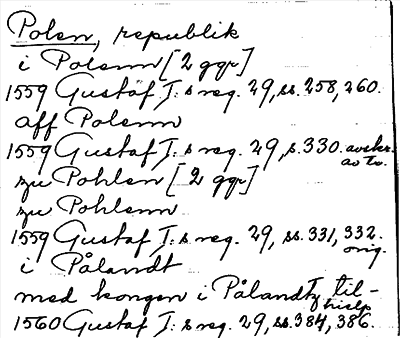 Polen, republik
i Polenn [2 ggr]
1559 Gustaf I:s reg. 29, ss. 258, 260.
aff Polenn
1559 Gustaf I:s reg. 29, s. 330. avskr. av tv.
zu Pohlen [2 ggr]
zu Pohlenn
1559 Gustaf I:s reg. 29, ss. 331, 332. orig.
i Pålandt
med kongen i Pålandtz til-
hielp
1560 Gustaf I:s reg. 29, ss. 384, 386.